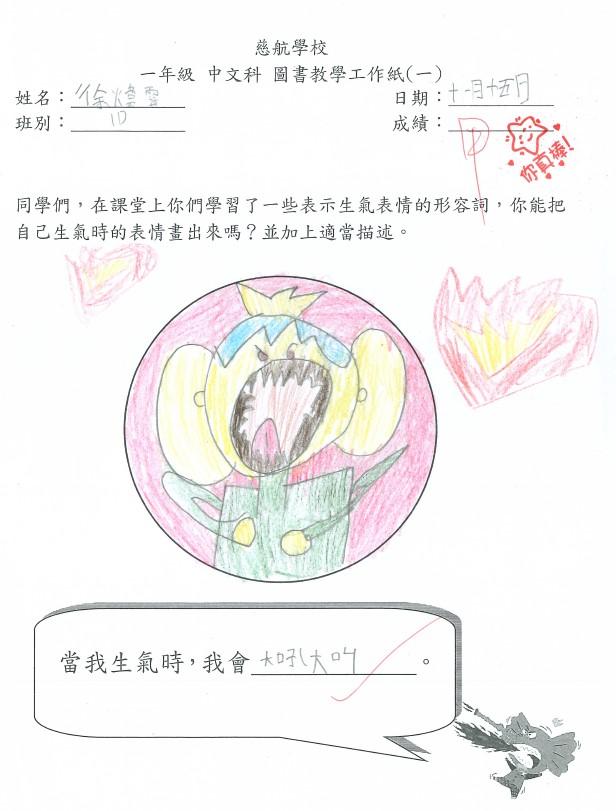 慈航學校
一年級 中文科 圖書教學工作紙(一)
姓名：徐煒 日期：十一月十五日
班別：1D 成績：
你真棒!
同學們，在課堂上你們學習了一些表示生氣表情的形容詞，你能把
自己生氣時的表情畫出來嗎？並加上適當描述。
當我生氣時，我會大吼大叫。